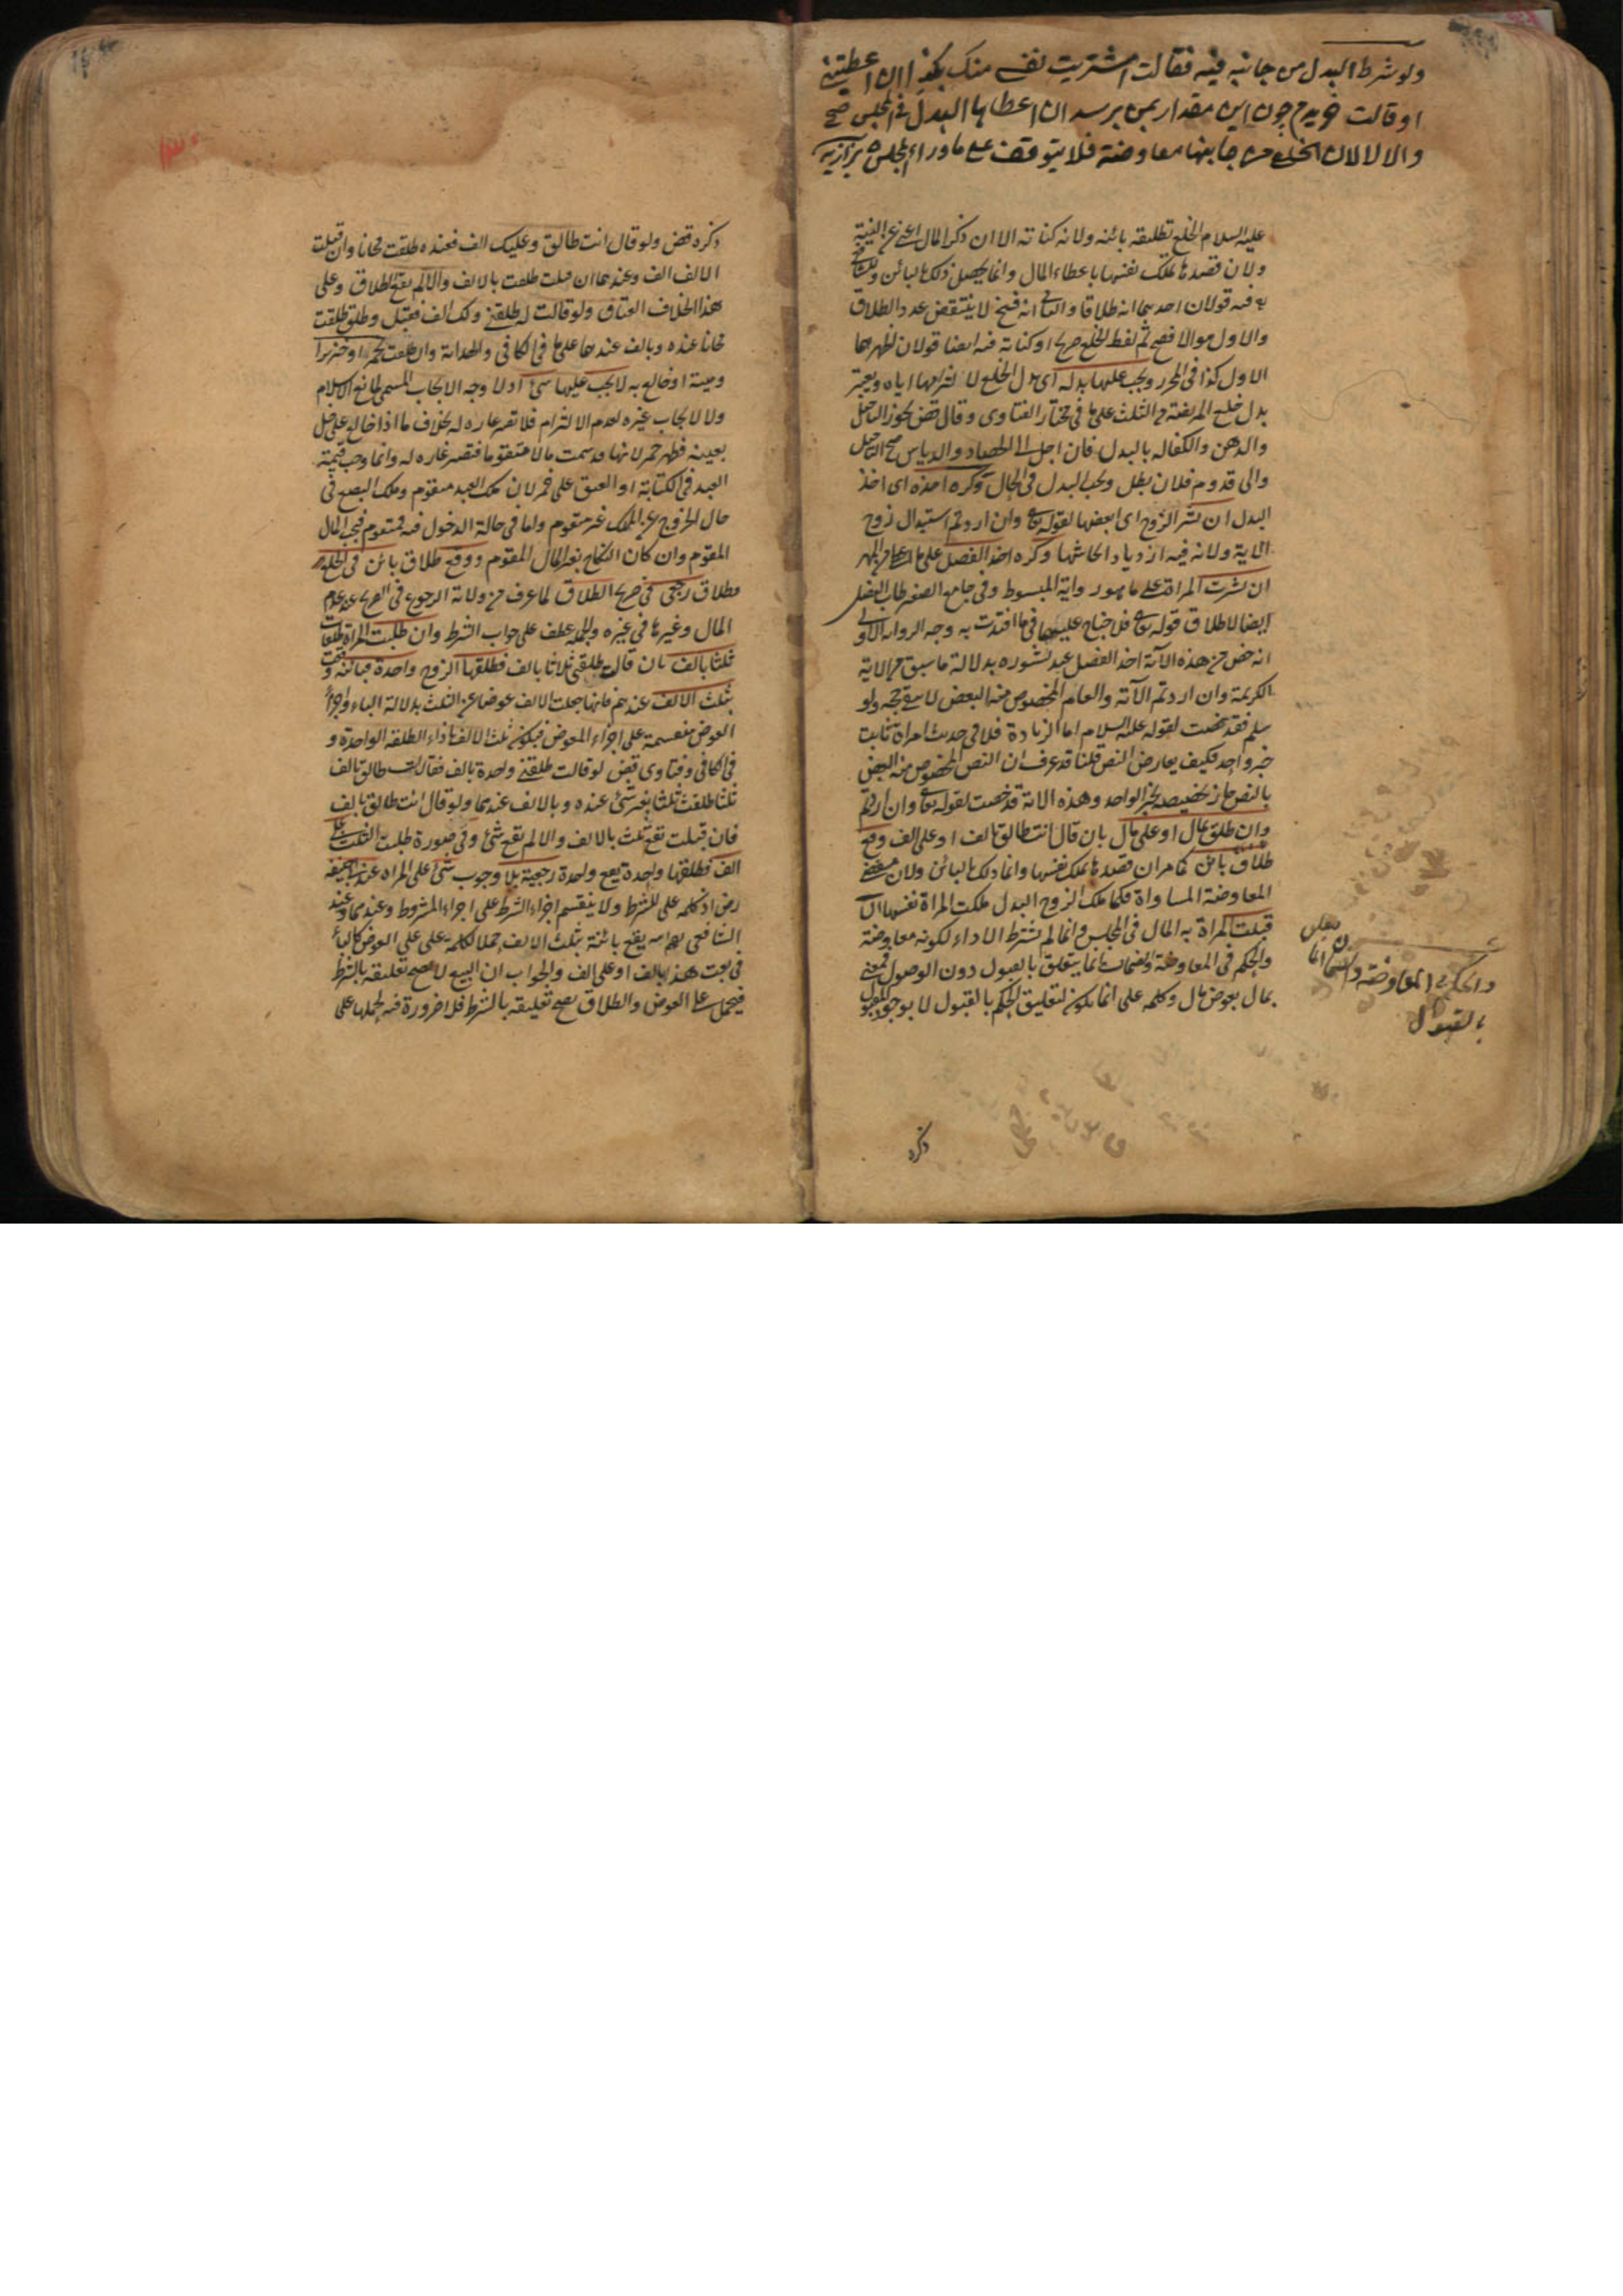 ولو شرط البدل من جانبه فيه فقالت اشتريت نفسي منك بكذا ان اعطيتني
او قالت خريدم چون اين مقدار بمن برسد ان اعطاها البدل في المجلس صح
والا لا لان الخلع من جانبها معاوضة فلا يتوقف على ما وراء المجلس بزازيه
عليه السلام الخلع تطليقه بائنه ولانه كناية الا ان ذكر المال اغنى عن النية
ولان قصدها تملك نفسها باعطاء المال وانما يحصل ذلك بالبائن وللشافعي
فيه قولان احدهما انه طلاق والثاني انه فسخ لا ينتقض عدد الطلاق
والاول هو الاصح ثم لفظ الخلع صريح او كناية فيه ايضا قولان اظهرهما
الاول كذا في المحرر ويجب عليها بدله اى بدل الخلع لالتزامها اياه ويعتبر
بدل خلع المريضة من الثلث على ما في مختار الفتاوى وقال قض يجوز التاجيل
والرهن والكفاله بالبدل فان اجل الى الحصاد والدياس صح التاجيل
والى قدوم فلان بطل ويجب البدل في الحال وكره اخذه اى اخذ
البدل ان نشز الزوج اى ابغضها لقوله تعالى وان اردتم استبدال زوج
الاية ولانه فيه ازدياد ايحاشها وكره اخذ الفضل على ما اعطى من المهر
ان نشزت المراة على ما هو رواية المبسوط وفي جامع الصغير طاب الفضل
ايضا لاطلاق قوله تعالى فلا جناح عليهما فيما افتدت به وجه الرواية الاولى
انه خص من هذه الاية اخذ الفضل عند نشوزه بدلالة ما سبق من الاية
الكريمة وان اردتم الآية والعام المخصوص منه البعض لا يبقى حجة ولو
سلم فقد خصت لقوله عليه السلام اما الزيادة فلا في حديث امراة ثابت
خبر واحد فكيف يعارض النص قلنا قد عرف ان النص المخصوص منه البعض
بالنص جاز تخصيصه بخبر الواحد وهذه الاية قد خصت لقوله تعالى وان اردتم
وان طلق بمال او على مال بان قال انت طالق بالف او على الف وقع
طلاق بائن كما مر ان قصدها تملك نفسها وانما ذلك بالبائن ولان مقتضى
المعاوضة المساواة فكما ملك الزوج البدل ملكت المراة نفسها ان
قبلت المراة به المال في المجلس وانما لم يشترط الاداء لكونه معاوضة
والحكم في المعاوضة والضمانات انما يتعلق بالقبول دون الوصول فمعنى
بمال بعوض مال وكلمه على انما يكون لتعليق الحكم بالقبول لا بوجود المقبول
والحكم في المعاوضة والضمان انما يتعلق
بالقبول
ذكره
ذكره قض ولو قال انت طالق وعليك الف فعنده طلقت مجانا وان قبلت
الالف الف وعندهما ان قبلت طلقت بالالف والا لم يقع الطلاق وعلى
هذا الخلاف العتاق ولو قالت له طلقني ولك الف فقبل وطلق طلقت
مجانا عنده وبالف عندهما على ما في الكافي والهداية وان طلقت بخمر او خنزير
وميتة او خالع به لا يجب عليها شئ اذ لا وجه الايجاب المسمى لمانع الاسلام
ولا لايجاب غيره لعدم الالتزام فلا تصير غاره له بخلاف ما اذا خالع على خل
بعينه فظهر خمر لانها قد سمت مالا متقوما فتصير غاره له وانما وجب قيمة
العبد في الكتابة او العتق على خمر لان ملك العبد متقوم وملك البضع في
حال الخروج عن الملك غير متقوم واما في حالة الدخول فيه فمتقوم فيجب المال
المقوم وان كان النكاح بغير المال المقوم ووقع طلاق بائن في الخلع
وطلاق رجعي في صريح الطلاق لما عرف من ولاية الرجوع في الصريح عند عدم
المال وغيرها في غيره والجملة عطف على جواب الشرط وان طلبت المراة طلقات
ثلثا بالف بان قالت طلقني ثلاثا بالف فطلقها الزوج واحدة فبائنة وقعت
بثلث الالف عندهم فانها جعلت الالف عوضا عن الثلث بدلالة الباء واجزاء
العوض منقسمة على اجزاء المعوض فيكون ثلث الالف بازاء الطلقه الواحدة و
في الكافي وفتاوى قض لو قالت طلقني واحدة بالف فقال انت طالق بالف
ثلثا طلقت ثلثا بغير شئ عنده وبالالف عندهما ولو قال انت طالق بالف
فان قبلت تقع ثلث بالالف والا لم تقع شئ وفي صورة طلبت الثلث على
الف فطلقها واحدة تقع واحدة رجعية بلا وجوب شئ على المراه عند ابي حنيفه
رض اذ كلمه على للشرط ولا ينقسم اجزاء الشرط على اجزاء المشروط وعندهما وعند
الشافعي رحمه الله يقع بائنة بثلث الالف حملا لكلمة على على العوض كالباء
في بعت هذا بالف او على الف والجواب ان البيع لا يصح تعليقه بالشرط
فيحمل على العوض والطلاق يصح تعليقه بالشرط فلا ضرورة فيه لحملها على